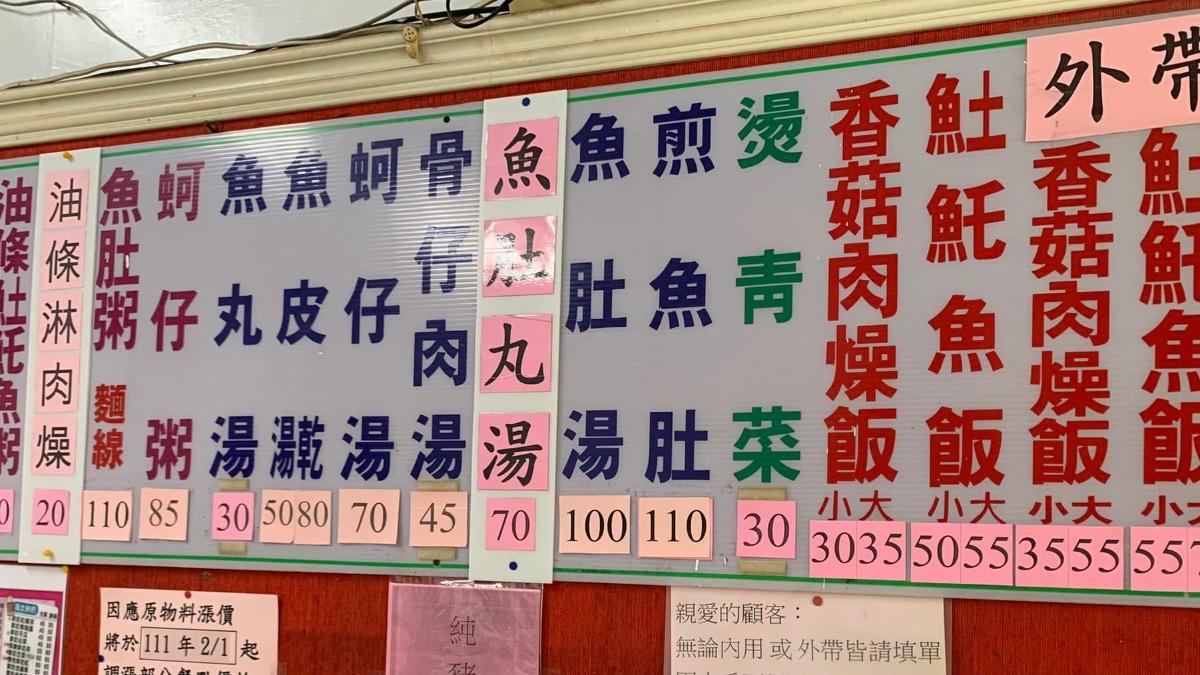 外帶
𩵚魠魚飯 小 大 55
香菇肉燥飯 小 大 35 55
𩵚魠魚飯 小 大 50 55
香菇肉燥飯 小 大 30 35
燙青菜 30
煎魚肚 110
魚肚湯 100
魚肚丸湯 70
骨仔肉湯 45
蚵仔湯 70
魚皮湯乾 50 80
魚丸湯 30
蚵仔粥 85
魚肚粥麵線 110
油條淋肉燥 20
油條𩵚魠魚粥 0
因應原物料漲價
將於111年2/1起
純
親愛的顧客：
無論內用或外帶皆請填單